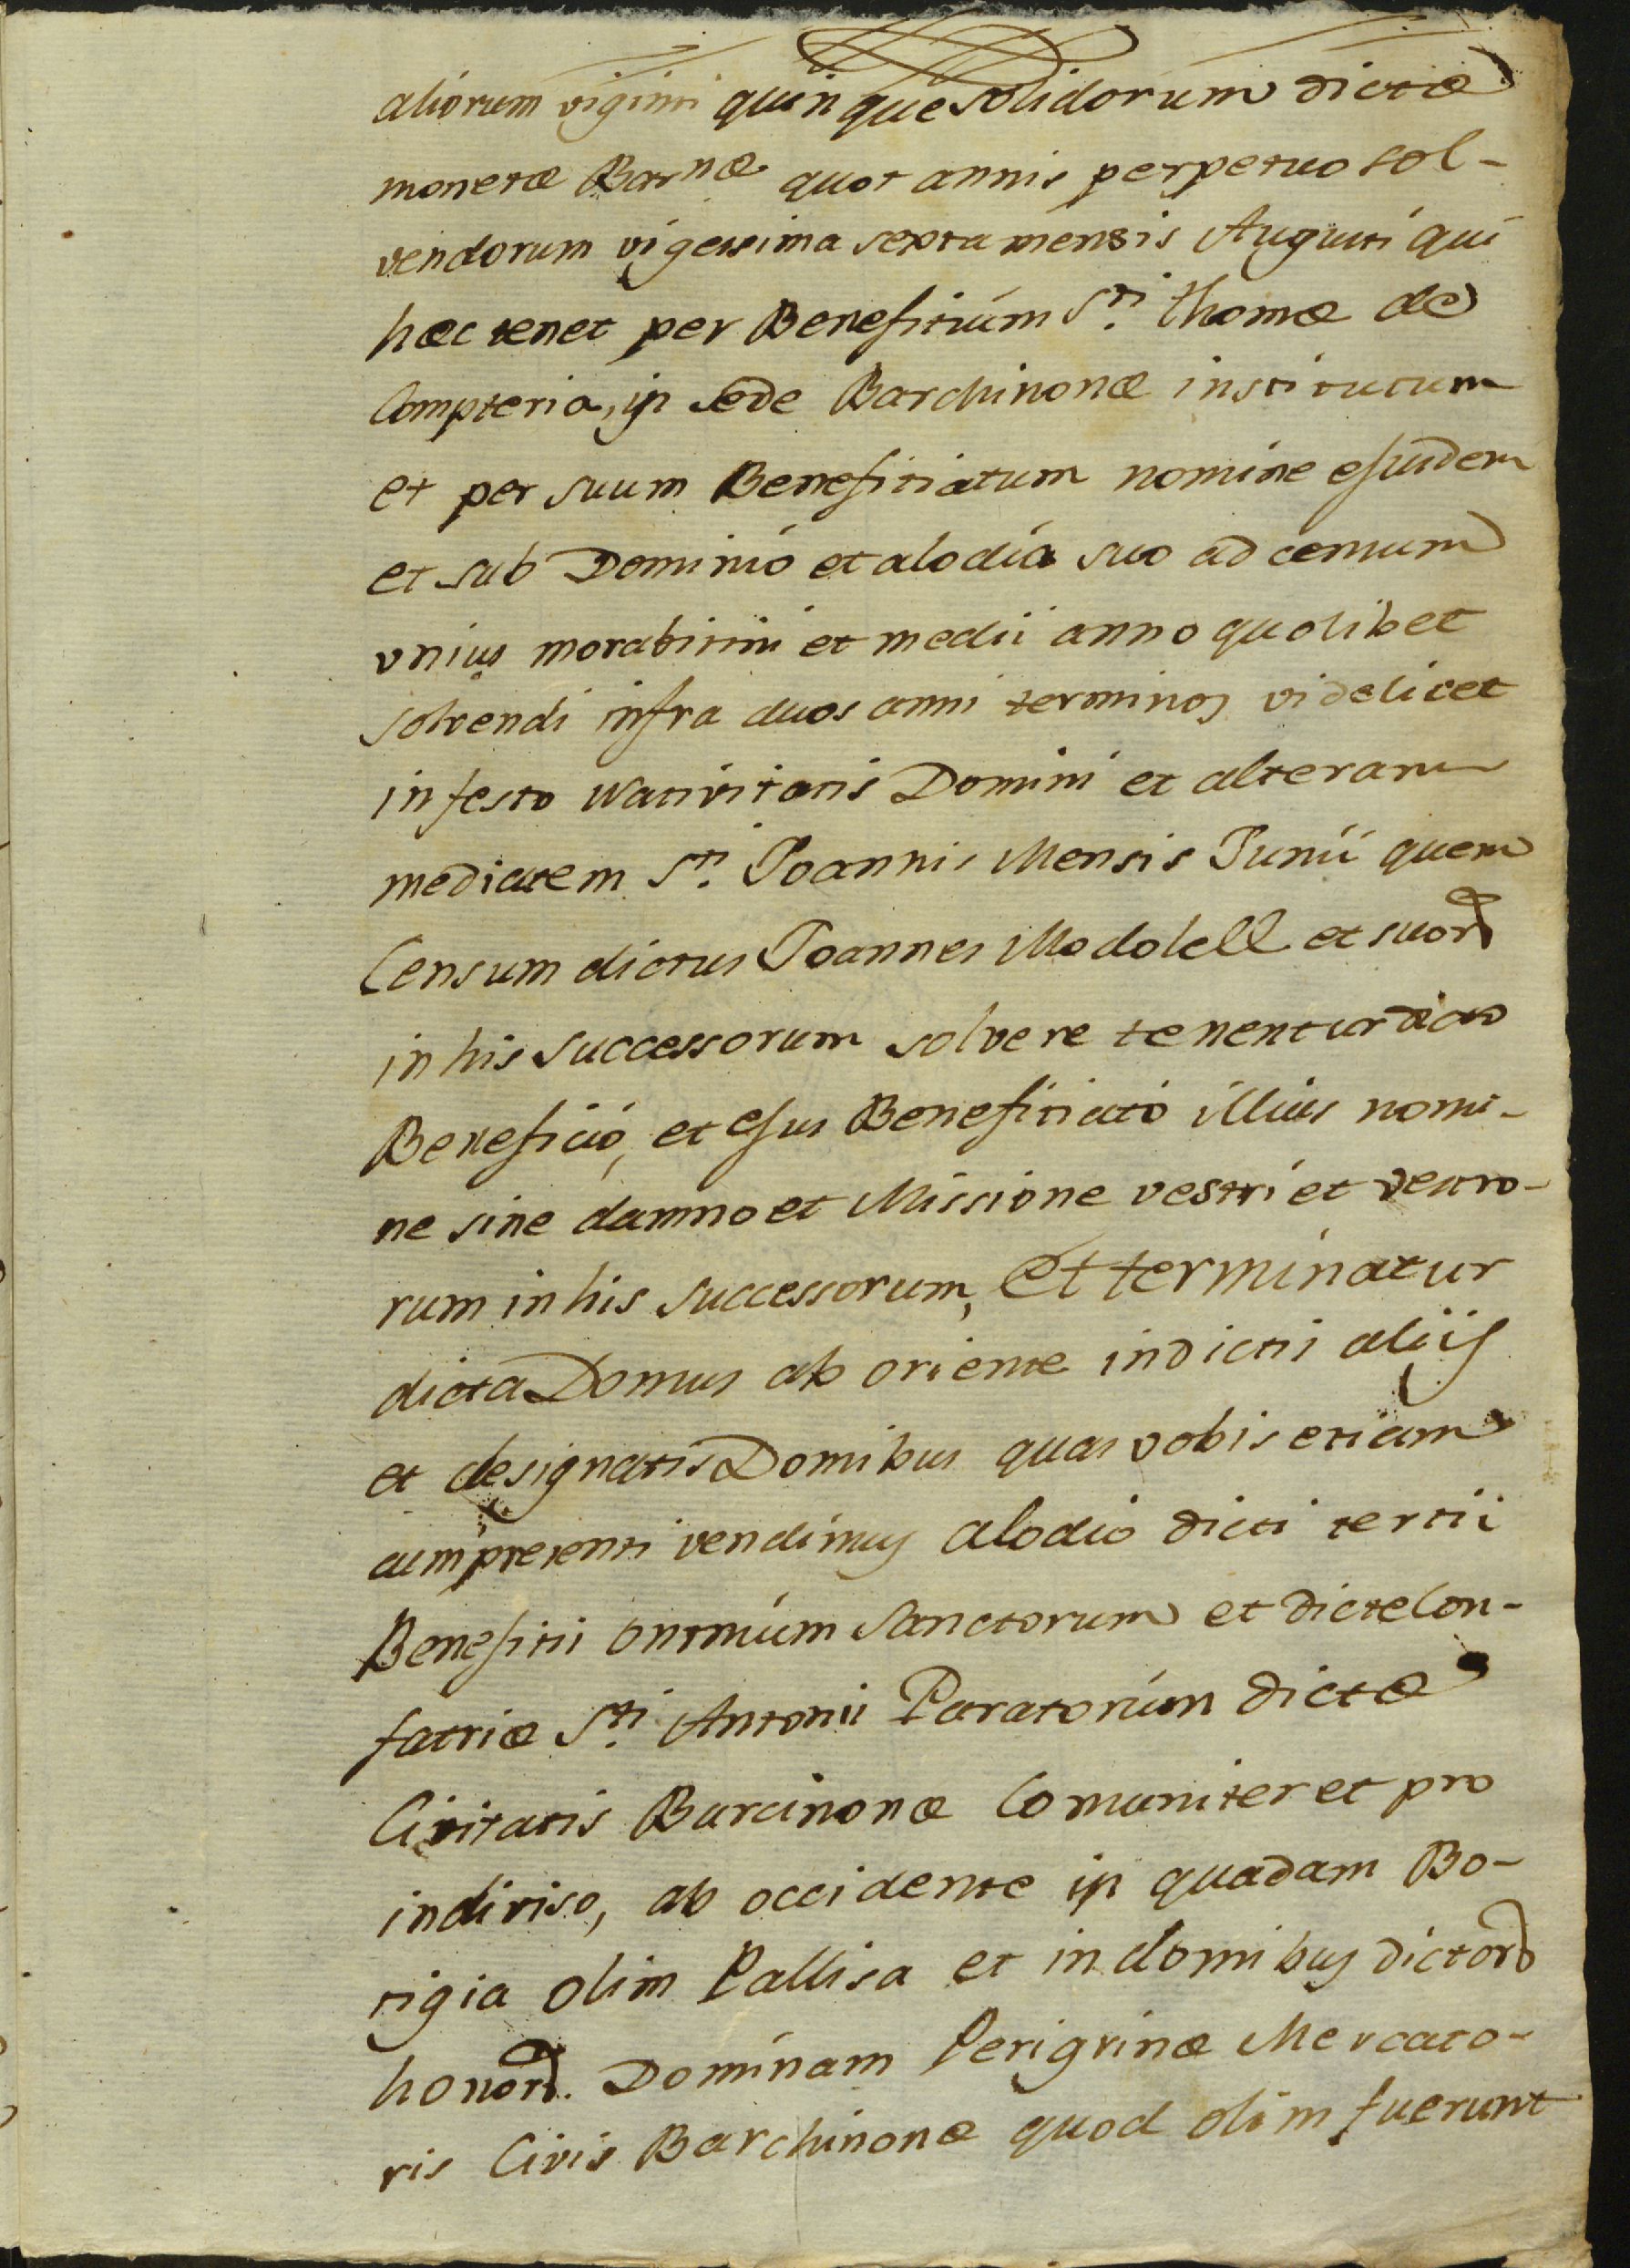 aliorum viginti quinque solidorum dictæ
monetæ Barnæ quot annis perpetuo sol-
vendorum vigessima sexta mensis Augusti qui
hæc tenet per Benefitium Sti. thomæ de
Compteria, in sede Barchinonæ institutum
et per suum Benefitiatum nomine ejusdem
et sub Dominio et alodia suo ad censum
unius morabitini et medii anno quolibet
solvendi infra duos anni terminos videlicet
in festo Nativitatis Domini et alteram
medietatem Sti. Joannis Mensis Junii quem
Censum dictus Joannes Modolell et suor
in his successorum solvere tenentur dicto
Beneficio, et ejus Benefitiato illius nomi-
ne sine damno et Missione vestri et vestro-
rum in his successorum, Et terminatur
dicta Domus ab oriente in dictis aliis
et designatis Domibus quas vobis etiam
cum presenti vendimus alodio dicti tertii
Benefitii omnium Sanctorum et dicte Con-
fatriæ Sti. Antonii Paratorum dictæ
Civitatis Barcinonæ Comuniter et pro
indiviso, ab occidente in quadam Bo-
tigia olim Pallisa et in domibus dictor
honor. Dominam Perigrinæ Mercato-
ris Civis Barchinonæ quod olim fuerunt